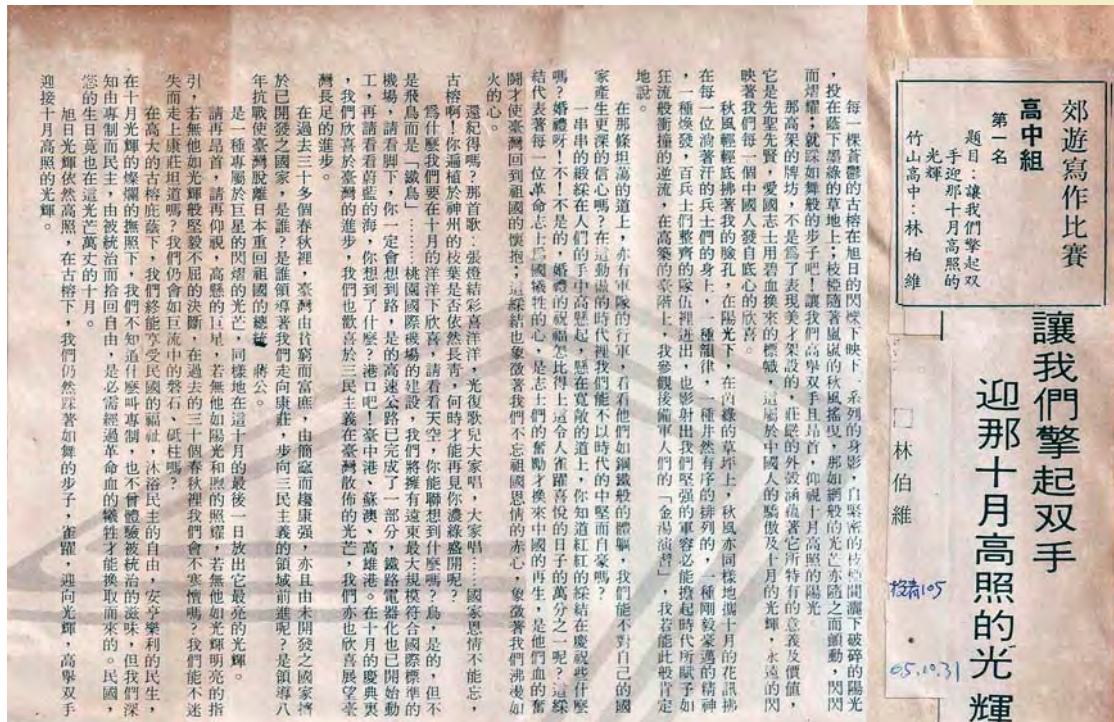 郊遊寫作比賽
高中組
第一名
題目：讓我們擎起双
手迎那十月高照的
光輝
竹山高中：林柏維
讓我們擎起双手
迎那十月高照的光輝
□林伯維
投青105
65.10.31
每一棵蒼鬱的古榕在旭日的閃爍下映下一系列的身影，自緊密的枝椏間灑下破碎的陽光
，投在蔭下墨綠的草地上；枝椏隨著嵐嵐的秋風搖曳，那如網般的光芒亦隨之而顫動，閃閃
而熠耀；就踩如舞般的步子吧！讓我們高舉双手且昂首，仰視十月高照的陽光。
那高架的牌坊，不是爲了表現美才架設的，莊嚴的外殼涵蘊著它所特有的意義及價值，
它是先聖先賢，愛國志士用碧血換來的標幟，這屬於中國人的驕傲及十月的光輝，永遠的閃
映著我們每一個中國人發自底心的欣喜。
秋風輕輕底拂著我的臉孔，在陽光下，在茵綠的草坪上，秋風亦同樣地攜十月的花訊拂
在每一位淌著汗的兵士們的身上，一種韻律，一種井然有序的排列的，一種剛毅豪邁的精神
，一種煥發，百兵士們整齊的隊伍裡迸出，也影射出我們堅强的軍容必能擔起時代所賦予如
狂流般衝撞的逆流，在高築的臺階上，我參觀後備軍人們的「金湯演習」，我若能此般肯定
地說。
在那條坦蕩的道上，亦有軍隊的行軍，看看他們如鋼鐵般的體軀，我們能不對自己的國
家產生更深的信心嗎？在這動盪的時代裡我們能不以時代的中堅而自豪嗎？
一串串的緞綵在人們的手中高懸起，懸在寬敞的道上，你知道紅紅的綵結在慶祝些什麼
嗎？婚禮呀！不！不是的，婚禮的祝福怎比得上這令人雀躍喜悅的日子的萬分之一呢？這綵
結代表著每一位革命志士爲國犧牲的心，是志士們的奮勵才換來中國的再生，是他們血的奮
鬪才使臺灣回到祖國的懷抱；這綵結也象徵著我們不忘祖國恩情的赤心，象徵著我們沸漫如
火的心。
還紀得嗎？那首歌：張燈結彩喜洋洋，光復歌兒大家唱，大家唱……國家恩情不能忘，
古榕啊！你遍植於神州的枝葉是否依然長青，何時才能再見你濃綠盛開呢？
爲什麼我們要在十月的洋洋下欣喜，請看看天空，你能聯想到什麼嗎？鳥，是的，但不
是飛鳥而是「鐵鳥」……桃園國際機場的建設，我們將擁有遠東最大規模符合國際標準的
機場，請看脚下，你一定會想到路，是的高速公路已完成了一部分，鐵路電器化也已開始動
工，再請看看蔚藍的海，你想到了什麼？港口吧！臺中港、蘇澳、高雄港。在十月的慶典裏
，我們欣喜於臺灣的進步，我們也歡喜於三民主義在臺灣散佈的光芒，我們亦也欣喜展望臺
灣長足的進步。
在過去三十多個春秋裡，臺灣由貧窮而富庶，由簡寇而趨康强，亦且由未開發之國家擠
於已開發之國家，是誰？是誰領導著我們走向康莊，步向三民主義的領域前進呢？是領導八
年抗戰使臺灣脫離日本重回祖國的總統　蔣公。
是一種專屬於巨星的閃熠的光芒，同樣地在這十月的最後一日放出它最亮的光輝。
請再昂首，請再仰視，高懸的巨星，若無他如陽光和煦的照耀，若無他如光輝明亮的指
引，若無他如光輝般堅毅不屈的決斷，在過去的三十個春秋裡我們會不寒懔嗎？我們能不迷
失而走上康莊坦道嗎？我們仍會如巨流中的磐石、砥柱嗎？
在高大的古榕庇蔭下，我們終能享受民國的福祉，沐浴民主的自由，安享樂利的民生，
在十月光輝的燦爛的撫照下，我們不知道什麼叫專制，也不曾體驗被統治的滋味，但我們深
知由專制而民主，由被統治而拾回自由，是必需經過革命血的犧牲才能換取而來的。民國，
您的生日竟也在這光芒萬丈的十月。
旭日光輝依然高照，在古榕下，我們仍然踩著如舞的步子，雀躍，迎向光輝，高舉双手
迎接十月高照的光輝。